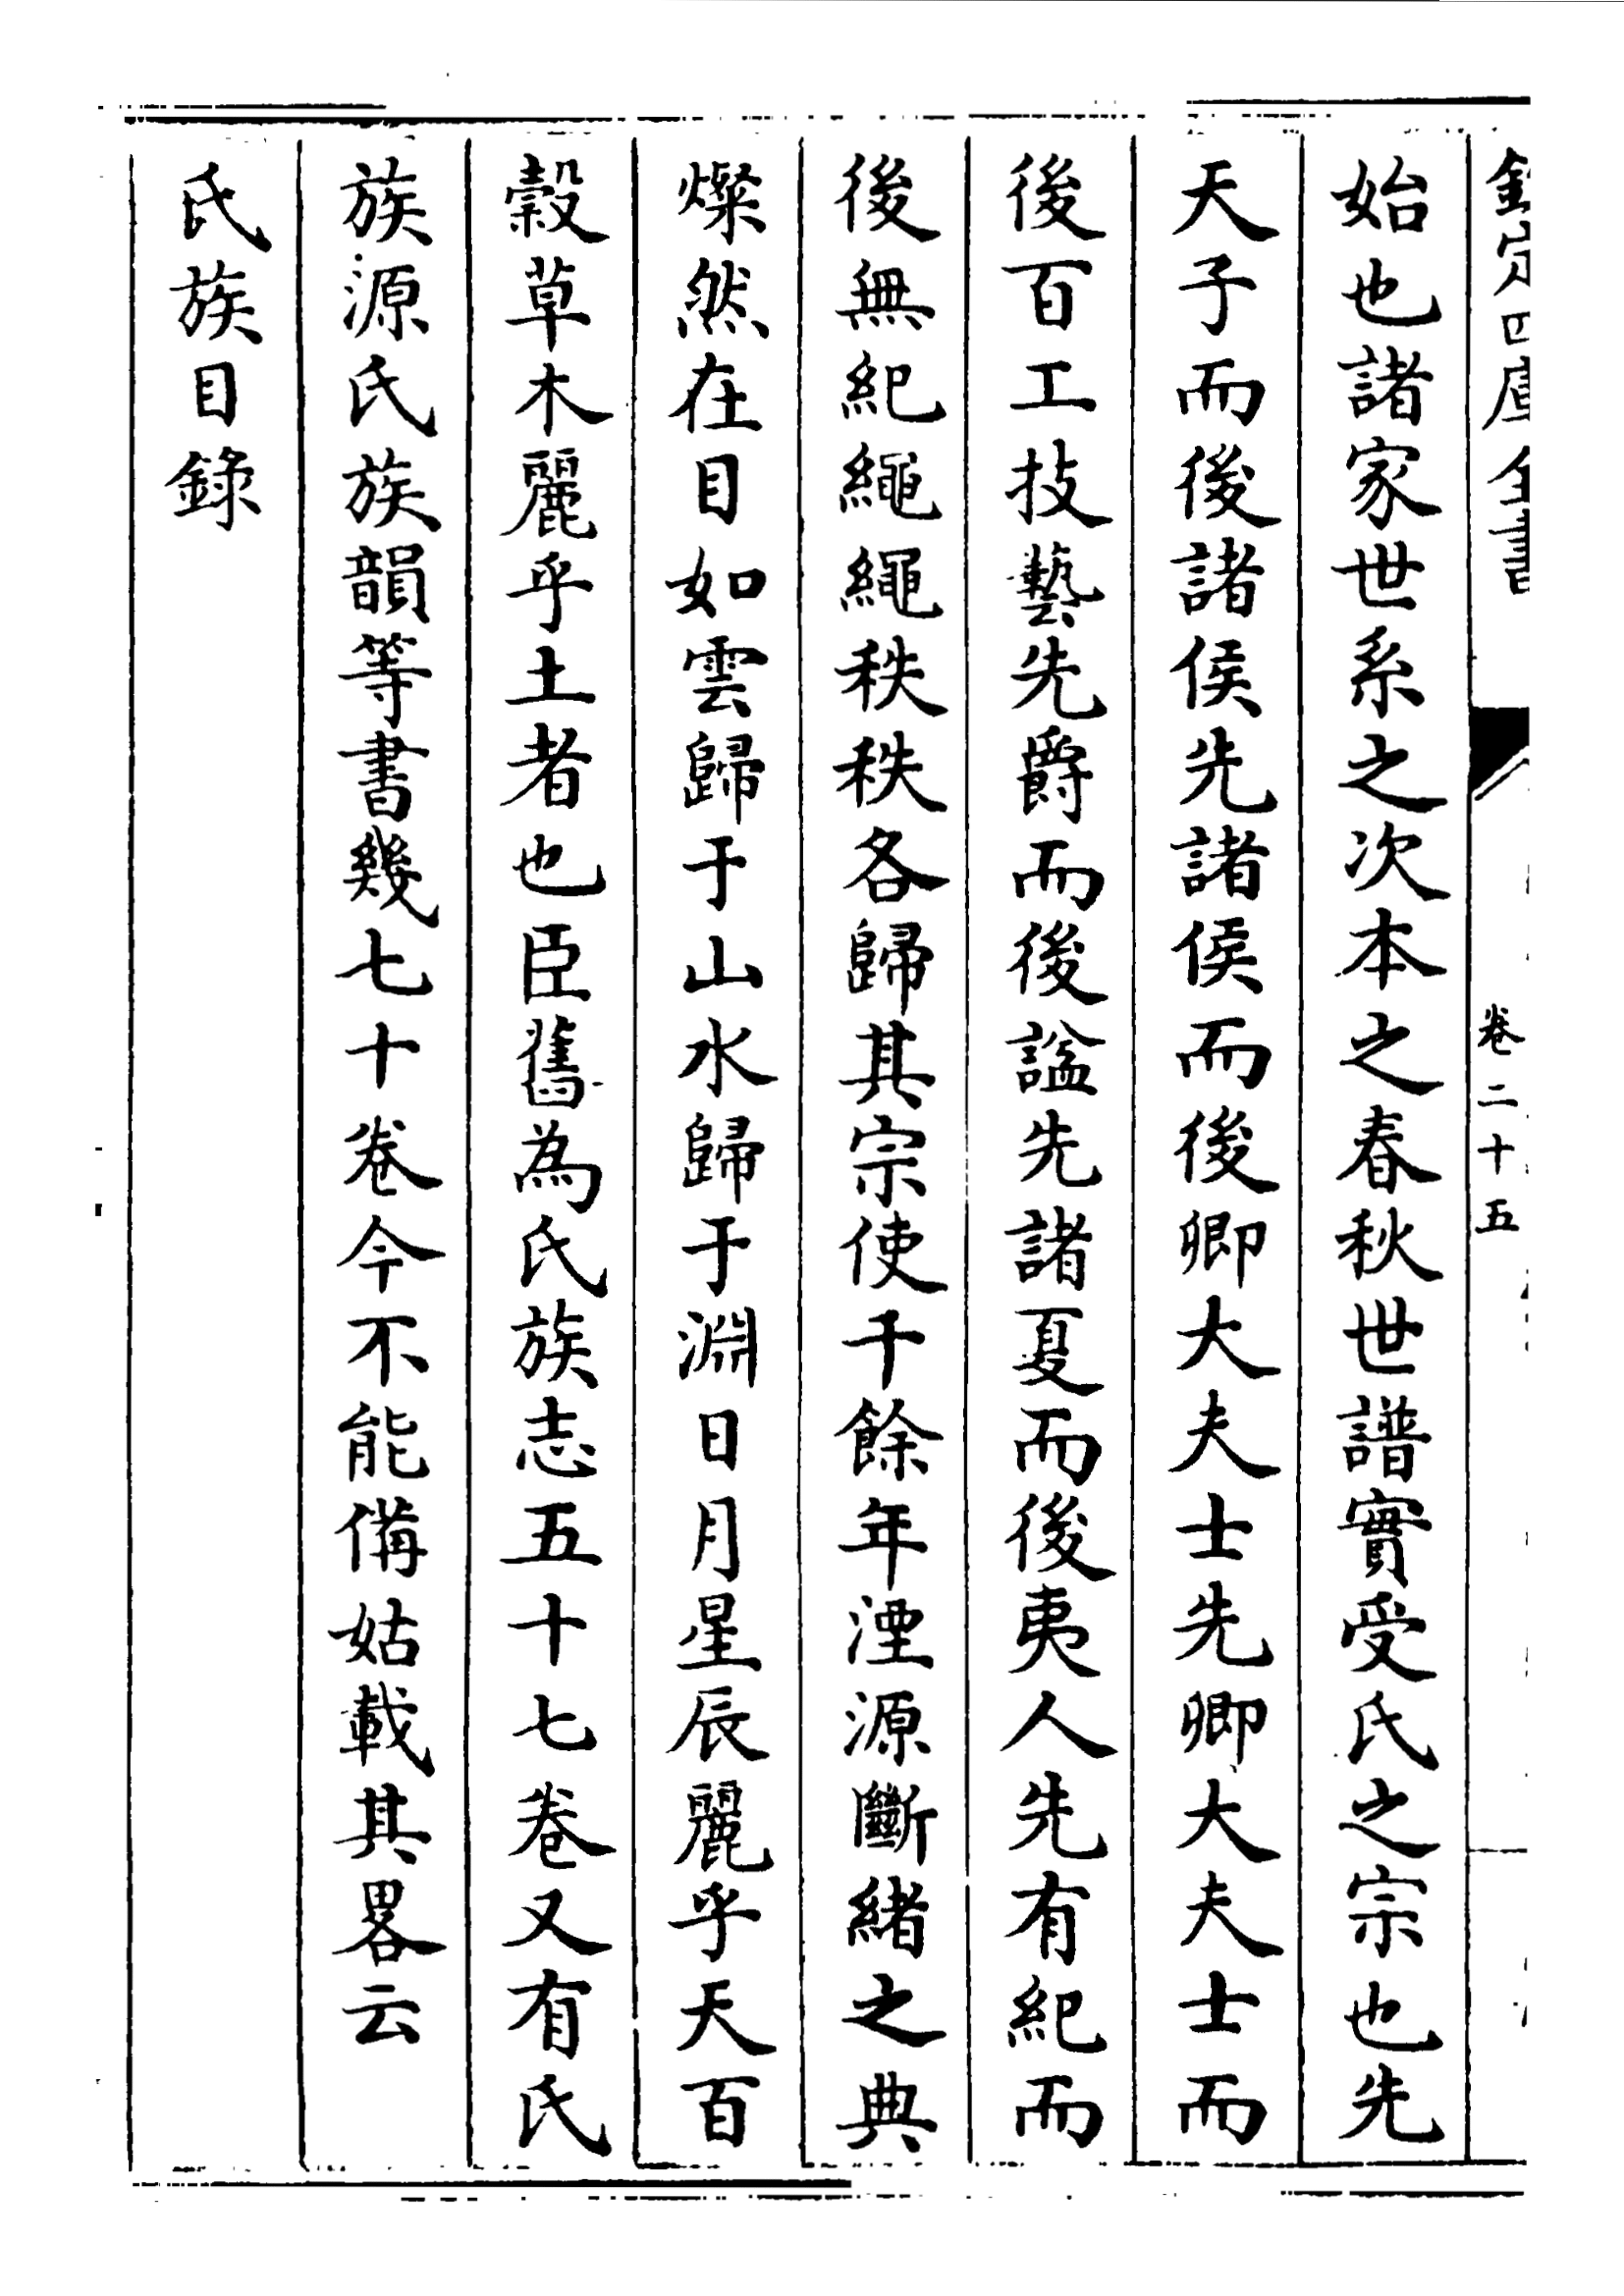 欽定四庫全書
卷二十五
始也諸家世系之次本之春秋世譜實受氏之宗也先
天子而後諸侯先諸侯而後卿大夫士先卿大夫士而
後百工技藝先爵而後諡先諸夏而後夷人先有紀而
後無紀繩繩秩秩各歸其宗使千餘年湮源斷緒之典
燦然在目如雲歸于山水歸于淵日月星辰麗乎天百
穀草木麗乎土者也臣舊為氏族志五十七卷又有氏
族源氏族韻等書幾七十卷今不能備姑載其畧云
氏族目錄